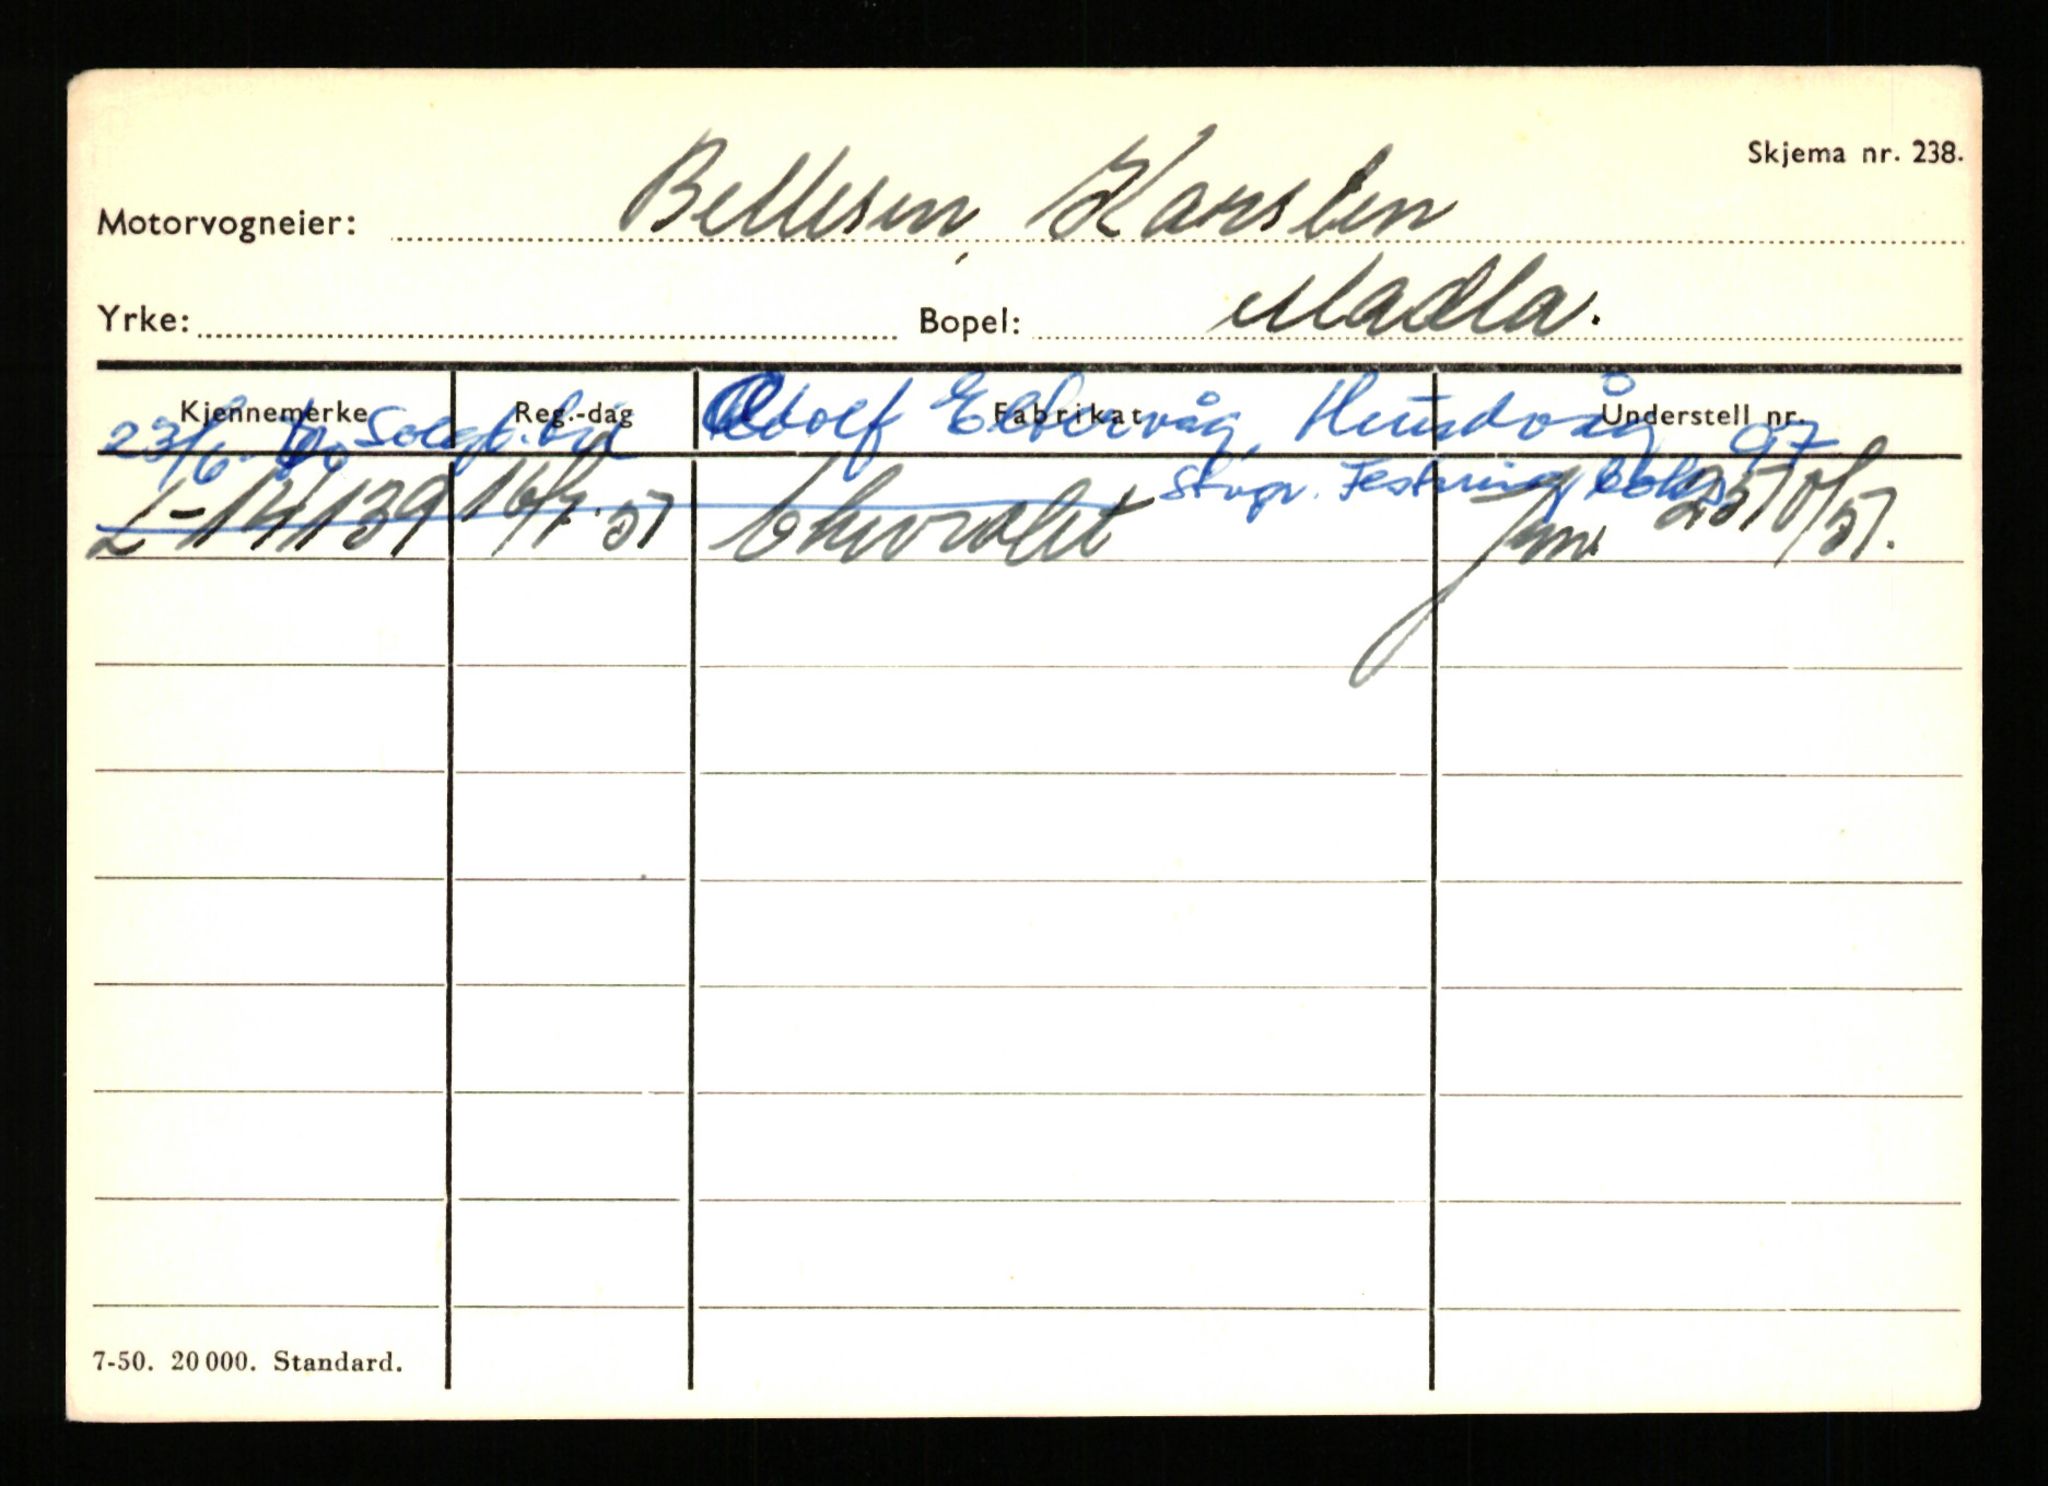 Skjema nr. 238.
Motorvogneier: Bettesen, Karsten
Yrke: Bopel: Madla.
Kjennemerke Reg.-dag Fabrikat Understell nr.
23/6- Solgt. til Adolf Hundvåg 97
Stvgr. Festning
L-14139 16/7.51 Chevrolet Jmr. /51.
7-50. 20 000. Standard.